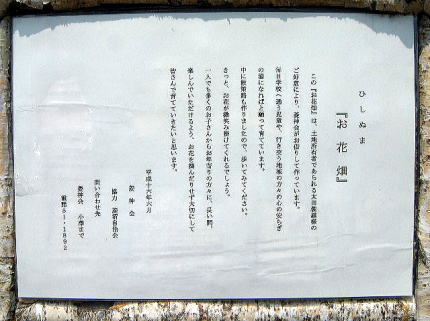 ひしぬま
『お花畑』
この『お花畑』は、土地所有者であられる大田
ご好意により、菱神会がお借りして作っています。
毎日学校へ通う児童や、行き交う地域の方々の心の安らぎ
の場になればと願って育てています。
中に散策路も作りましたので、歩いてみてください。
きっと、お花が微笑み掛けてくれるでしょう。
一人でも多くのお子さんからお年寄りの方々に、長い間、
楽しんでいただけるよう、お花を摘んだりせず大切にして
皆さんで育てていきたいと思います。
平成十六年六月
菱神会
協力 自治会
問い合わせ先
菱神会 小 まで
電話51・1892